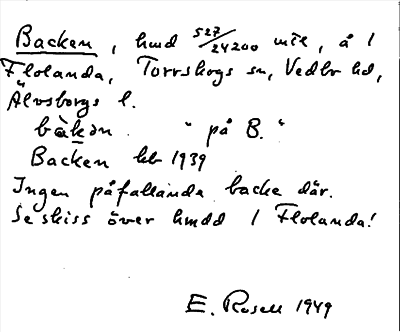 Backen, hmd 527/24200 mtl, å 1
Flolanda, Torrskogs sn, Vedbo hd,
Älvsborgs l.
bàkən. "på B."
Backen hb 1939
Ingen påfallande backe där.
Se skiss över hmdd 1 Flolanda!
E. Rosell 1949